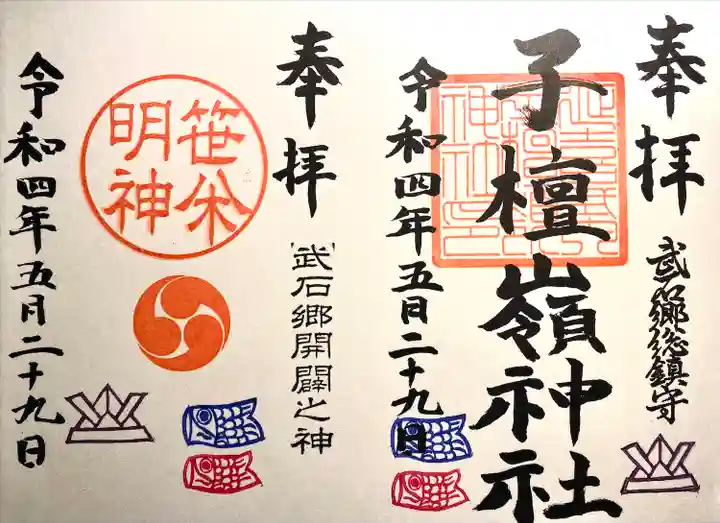 奉拝
武石郷総鎮守
子檀嶺神社
令和四年五月二十九日
奉拝
武石郷開闢之神
笹焼
明神
令和四年五月二十九日